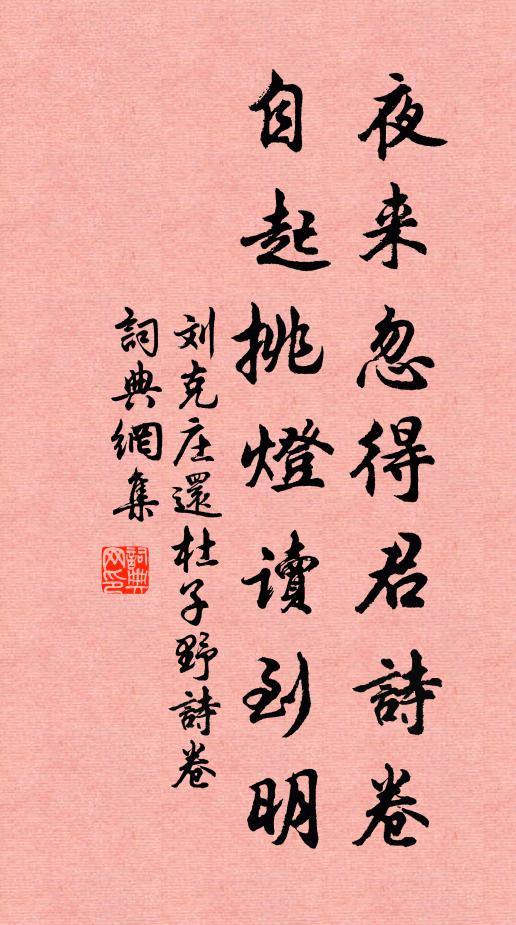 夜来忽得君詩卷
自起挑燈读到明
刘克庄還杜子野詩卷
詞典網集
詞典网印